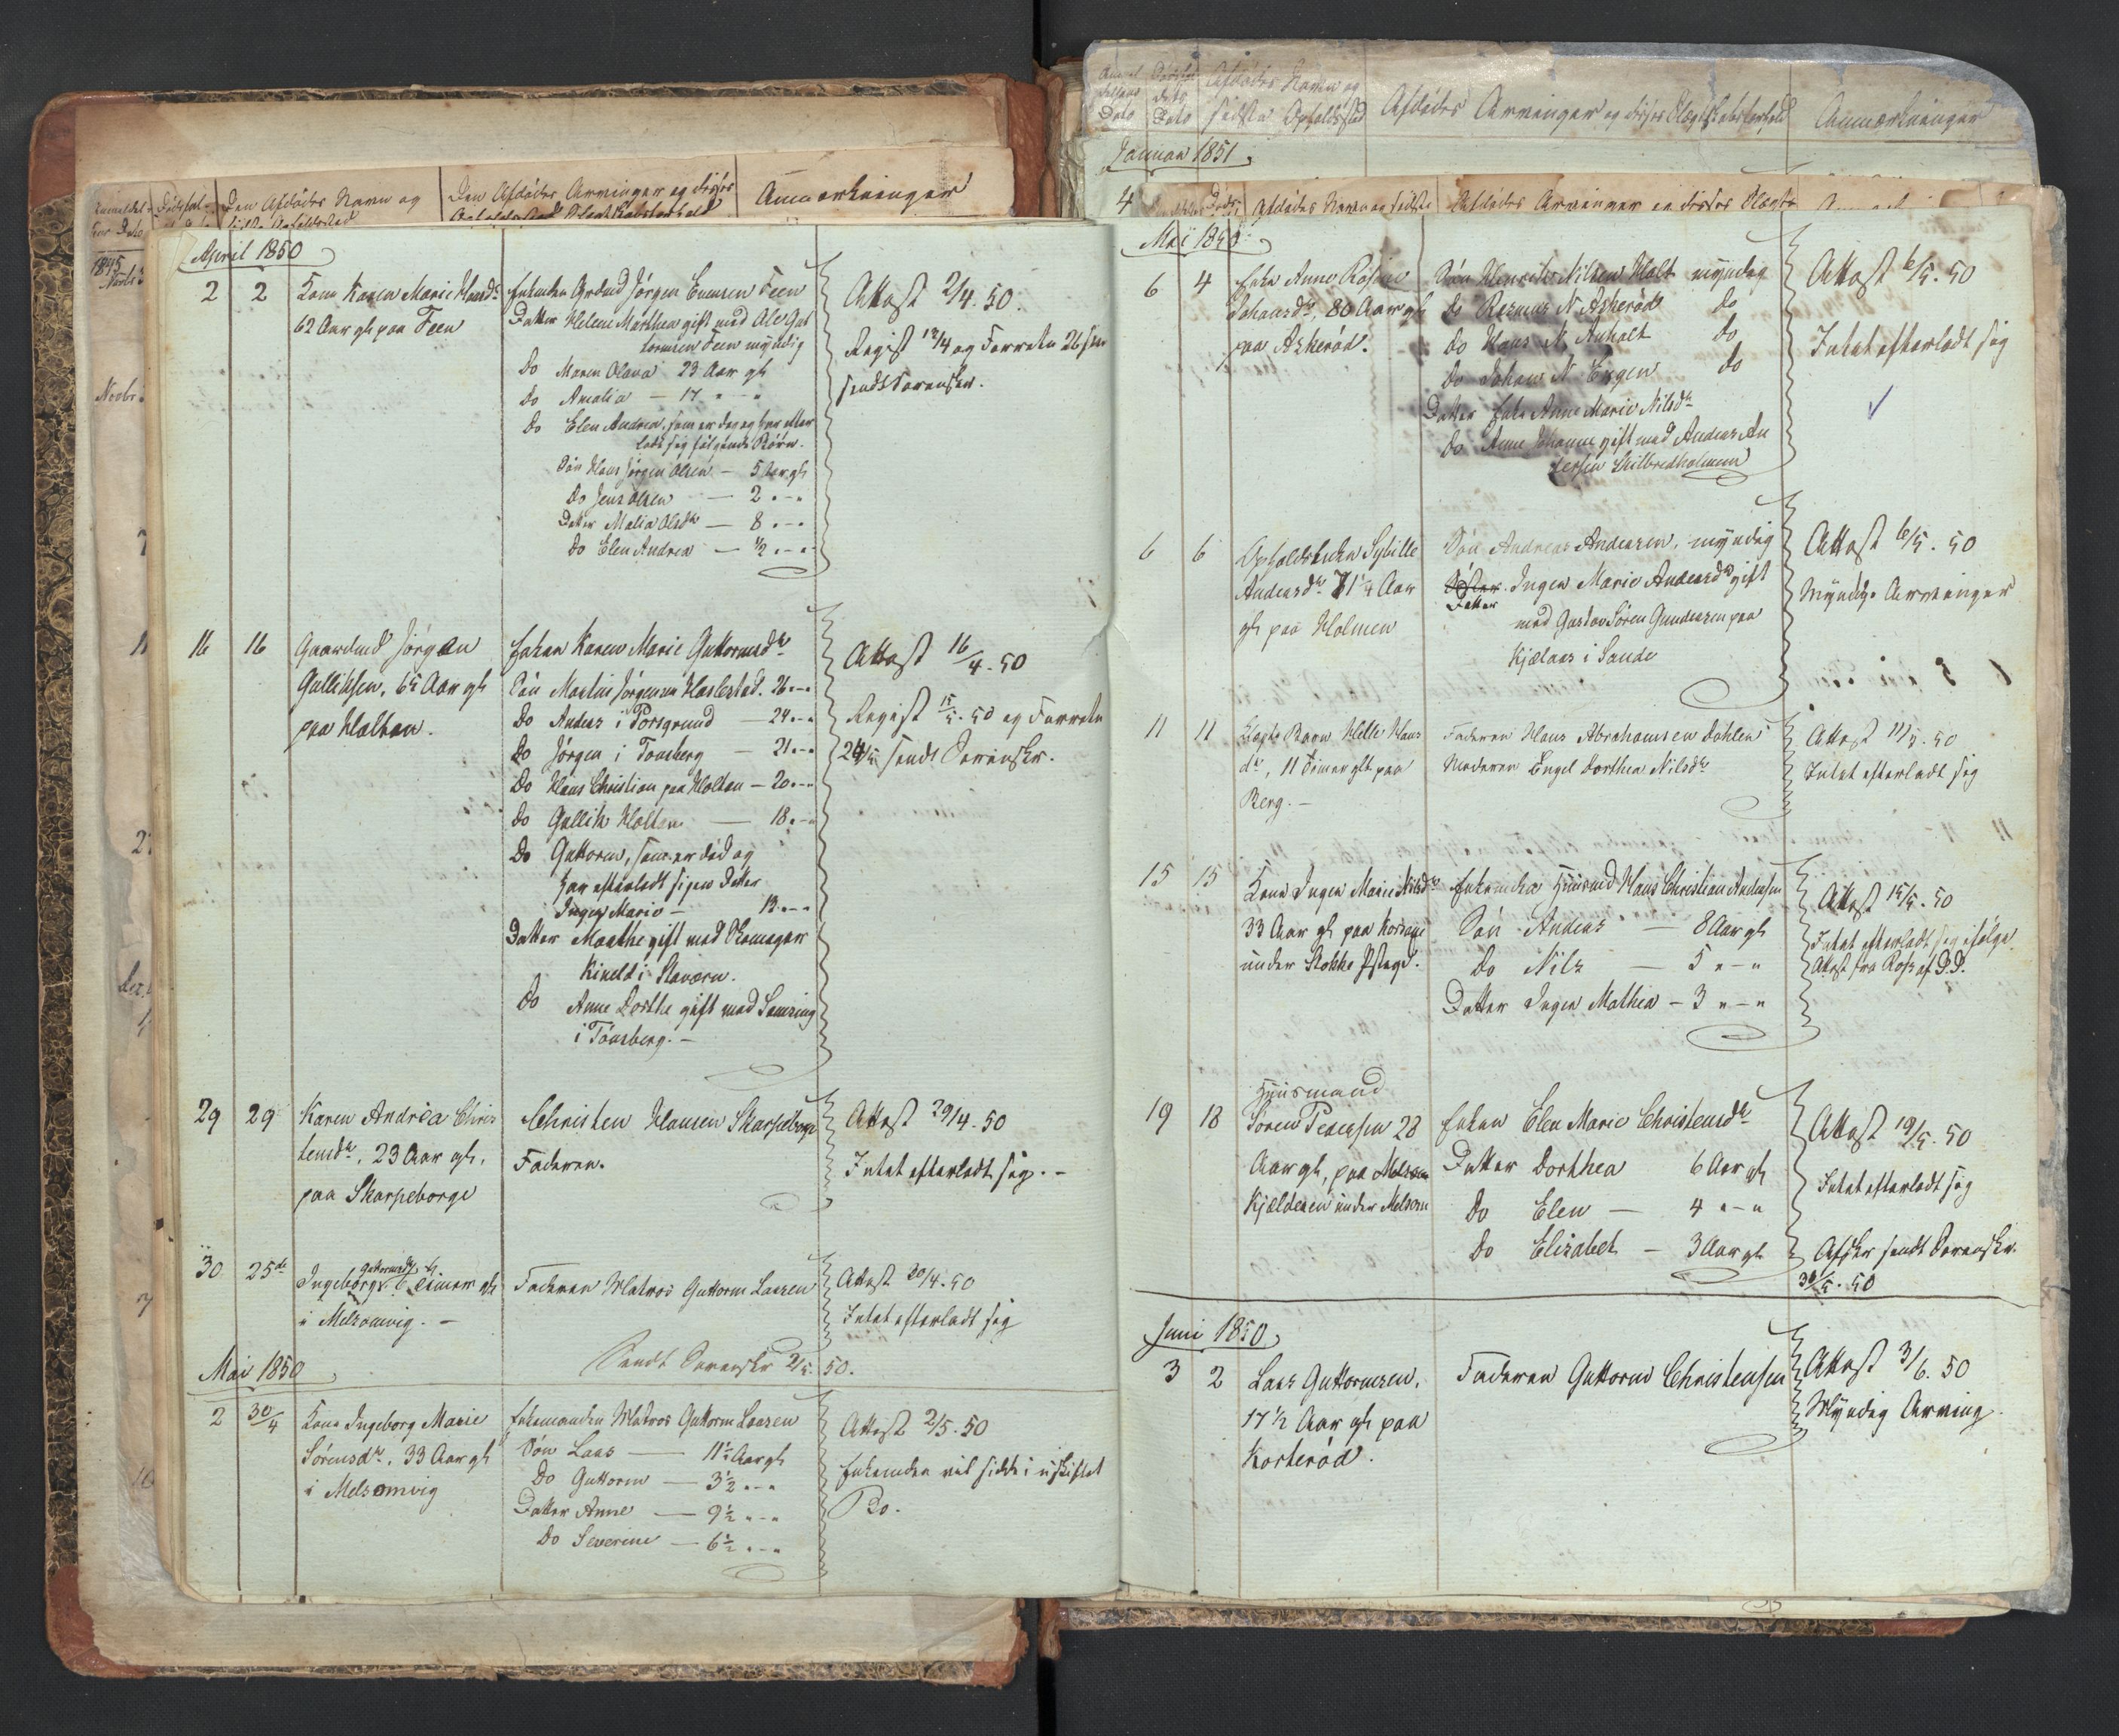 Dødsfal-
Den Afdødes Navn og
Den Afdødes Arvinger og disses
Anmærkninger
1845
Novbr.
April 1850
2 2 Kone Karen Marie Hansd.
62 Aar gl. paa Feen
Enkemanden Grdmd Jørgen Evensen Feen
Datter Helene Mathea gift med Ole Gut
tormsen Feen myndig
Do Maren Olava 23 Aar gl.
Do Amalia — 17 " — "
Do Elen Andrea, som er død og har efter
ladt sig følgende Børn.
Søn Hans Jørgen Olsen — 5 Aar gl.
Do Jens Olsen — 2 " — "
Datter Malia Olsdtr — 8 " — "
Do Elen Andrea — ½ " — "
Attest 2/4. 50.
Regist 12/4 og Forretn 26
sendt Sorenskr.
16 16 Gaardmd Jørgen
Gulliksen, 65 Aar gl.
paa Holtan.
Enken Karen Marie Guttormsd.
Søn Martin Jørgensen Haslestad. 26 " — "
Do Anders i Porsgrund — 24 " — "
Do Jørgen i Tønsberg — 21 " — "
Do Hans Christian paa Holtan — 20 " — "
Do Gullik Holtan — 18 " — "
Do Guttorm, som er død og
har efterladt sig en Datter
Inger Marie — 13 " — "
Datter Marthe gift med Skomager
Kineldt i Staværn.
Do Anne Dorthe gift med Semring
i Tönsberg. —
Attest 16/4. 50
Regist 15/5. 50 og Forretn
24/5 sendt Sorenskr.
29 29 Karen Andrea Chris
tensd., 23 Aar gl.,
paa Skarpeborge
Christen Hansen Skarpeborge
Faderen.
Attest 29/4. 50
Intet efterladt sig. —
30 25de Guttormsd.
Ingeborg 6 Timer gl.
i Melsomvig. —
Faderen Matros Guttorm Larsen
Attest 30/4. 50
Intet efterladt sig
Sendt Sorenskr 2/5. 50.
Mai 1850
2 30/4 Kone Ingeborg Marie
Sørensd., 33 Aar gl.
i Melsomvig
Enkemanden Matros Guttorm Larsen
Søn Lars — 11½ Aar gl.
Do Guttorm — 3½ " — "
Datter Anne — 9½ " — "
Do Severine — 6½ " — "
Attest 2/5. 50
Enkemden vil sidde i uskiftet
Bo.
Afdødes Navn og
sidste Opholdssted
Afdødes Arvinger og disses Slægtskabsforhold
Anmærkninger
Januar 1851
4
Afdødes Navn og sidste
Afdødes Arvinger og disses Slægts
Mai 1850
6 4 Enke Anne Rosine
Johansd., 80 Aar gl.
paa Askerød.
Søn Henrik Nilsen Holt myndig
Do Rasmus N. Askerød do
Do Hans N. Anholt do
Do Johan N. Engen do
Datter Enke Anne Marie Nilsd.
Do Anne Johanne gift med Anders An
dersen Skilbredholmen
Attest 6/5. 50
Intet efterladt sig
6 6 Opholdsenken Sybille
Andersd. 71¼ Aar
gl. paa Holmen
Søn Andreas Andersen, myndig
Datter Inger Marie Andersd. gift
med Gustav Søren Gundersen paa
Kjælaas i Sande
Attest 6/5. 50
Myndige Arvinger
11 11 Barn Helle Hans
dr, 11 Timer glt. paa
Berg. —
Faderen Hans Abrahamsen Dahlen
Moderen Engel Dorthea Nilsd.
Attest 11/5. 50
Intet efterladt sig
15 15 Kone Inger Marie Nilsd.
33 Aar gl. paa
under Stokke Pstegd.
Enkemden Huusmd Hans Christian Andersen
Søn Anders — 8 Aar gl.
Do Nils — 5 " — "
Datter Inger Mathea — 3 " — "
Attest 15/5. 50
Intet efterladt sig ifølge
Attest fra af D.D.
19 18 Huusmand
Søren Pedersen 28
Aar gl., paa Melsom
Kjælderen under Melsom
Enken Elen Marie Christensd.
Datter Dorthea 6 Aar gl.
Do Elen — 4 " — "
Do Elisabet — 3 Aar gl.
Attest 19/5. 50
Intet efterladt sig
Afskr sendt Sorenskr.
30/5. 50
Juni 1850
3 2 Lars Guttormsen,
17½ Aar gl. paa
Korterød.
Faderen Guttorm Christensen
Attest 3/6. 50
Myndig Arving.